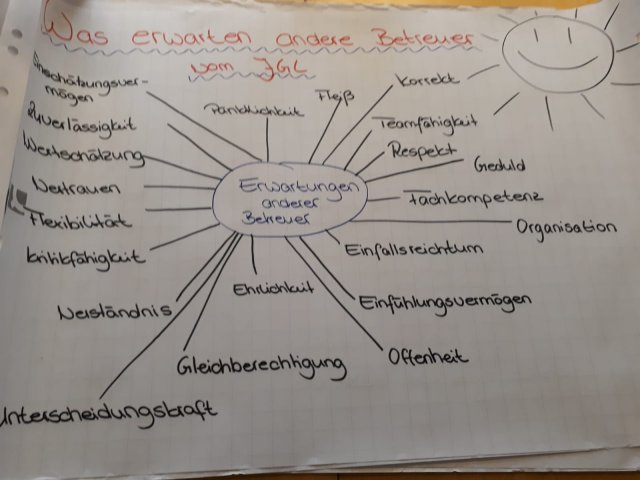 Was erwarten andere Betreuer
vom JGL
Einschätzungsver-
mögen
Zuverlässigkeit
Wertschätzung
Vertrauen
Flexibilität
Kritikfähigkeit
Verständnis
Unterscheidungskraft
Gleichberechtigung
Ehrlichkeit
Pünktlichkeit
Fleiß
Korrekt
Teamfähigkeit
Respekt
Geduld
Fachkompetenz
Organisation
Einfallsreichtum
Einfühlungsvermögen
Offenheit
Erwartungen
anderer
Betreuer